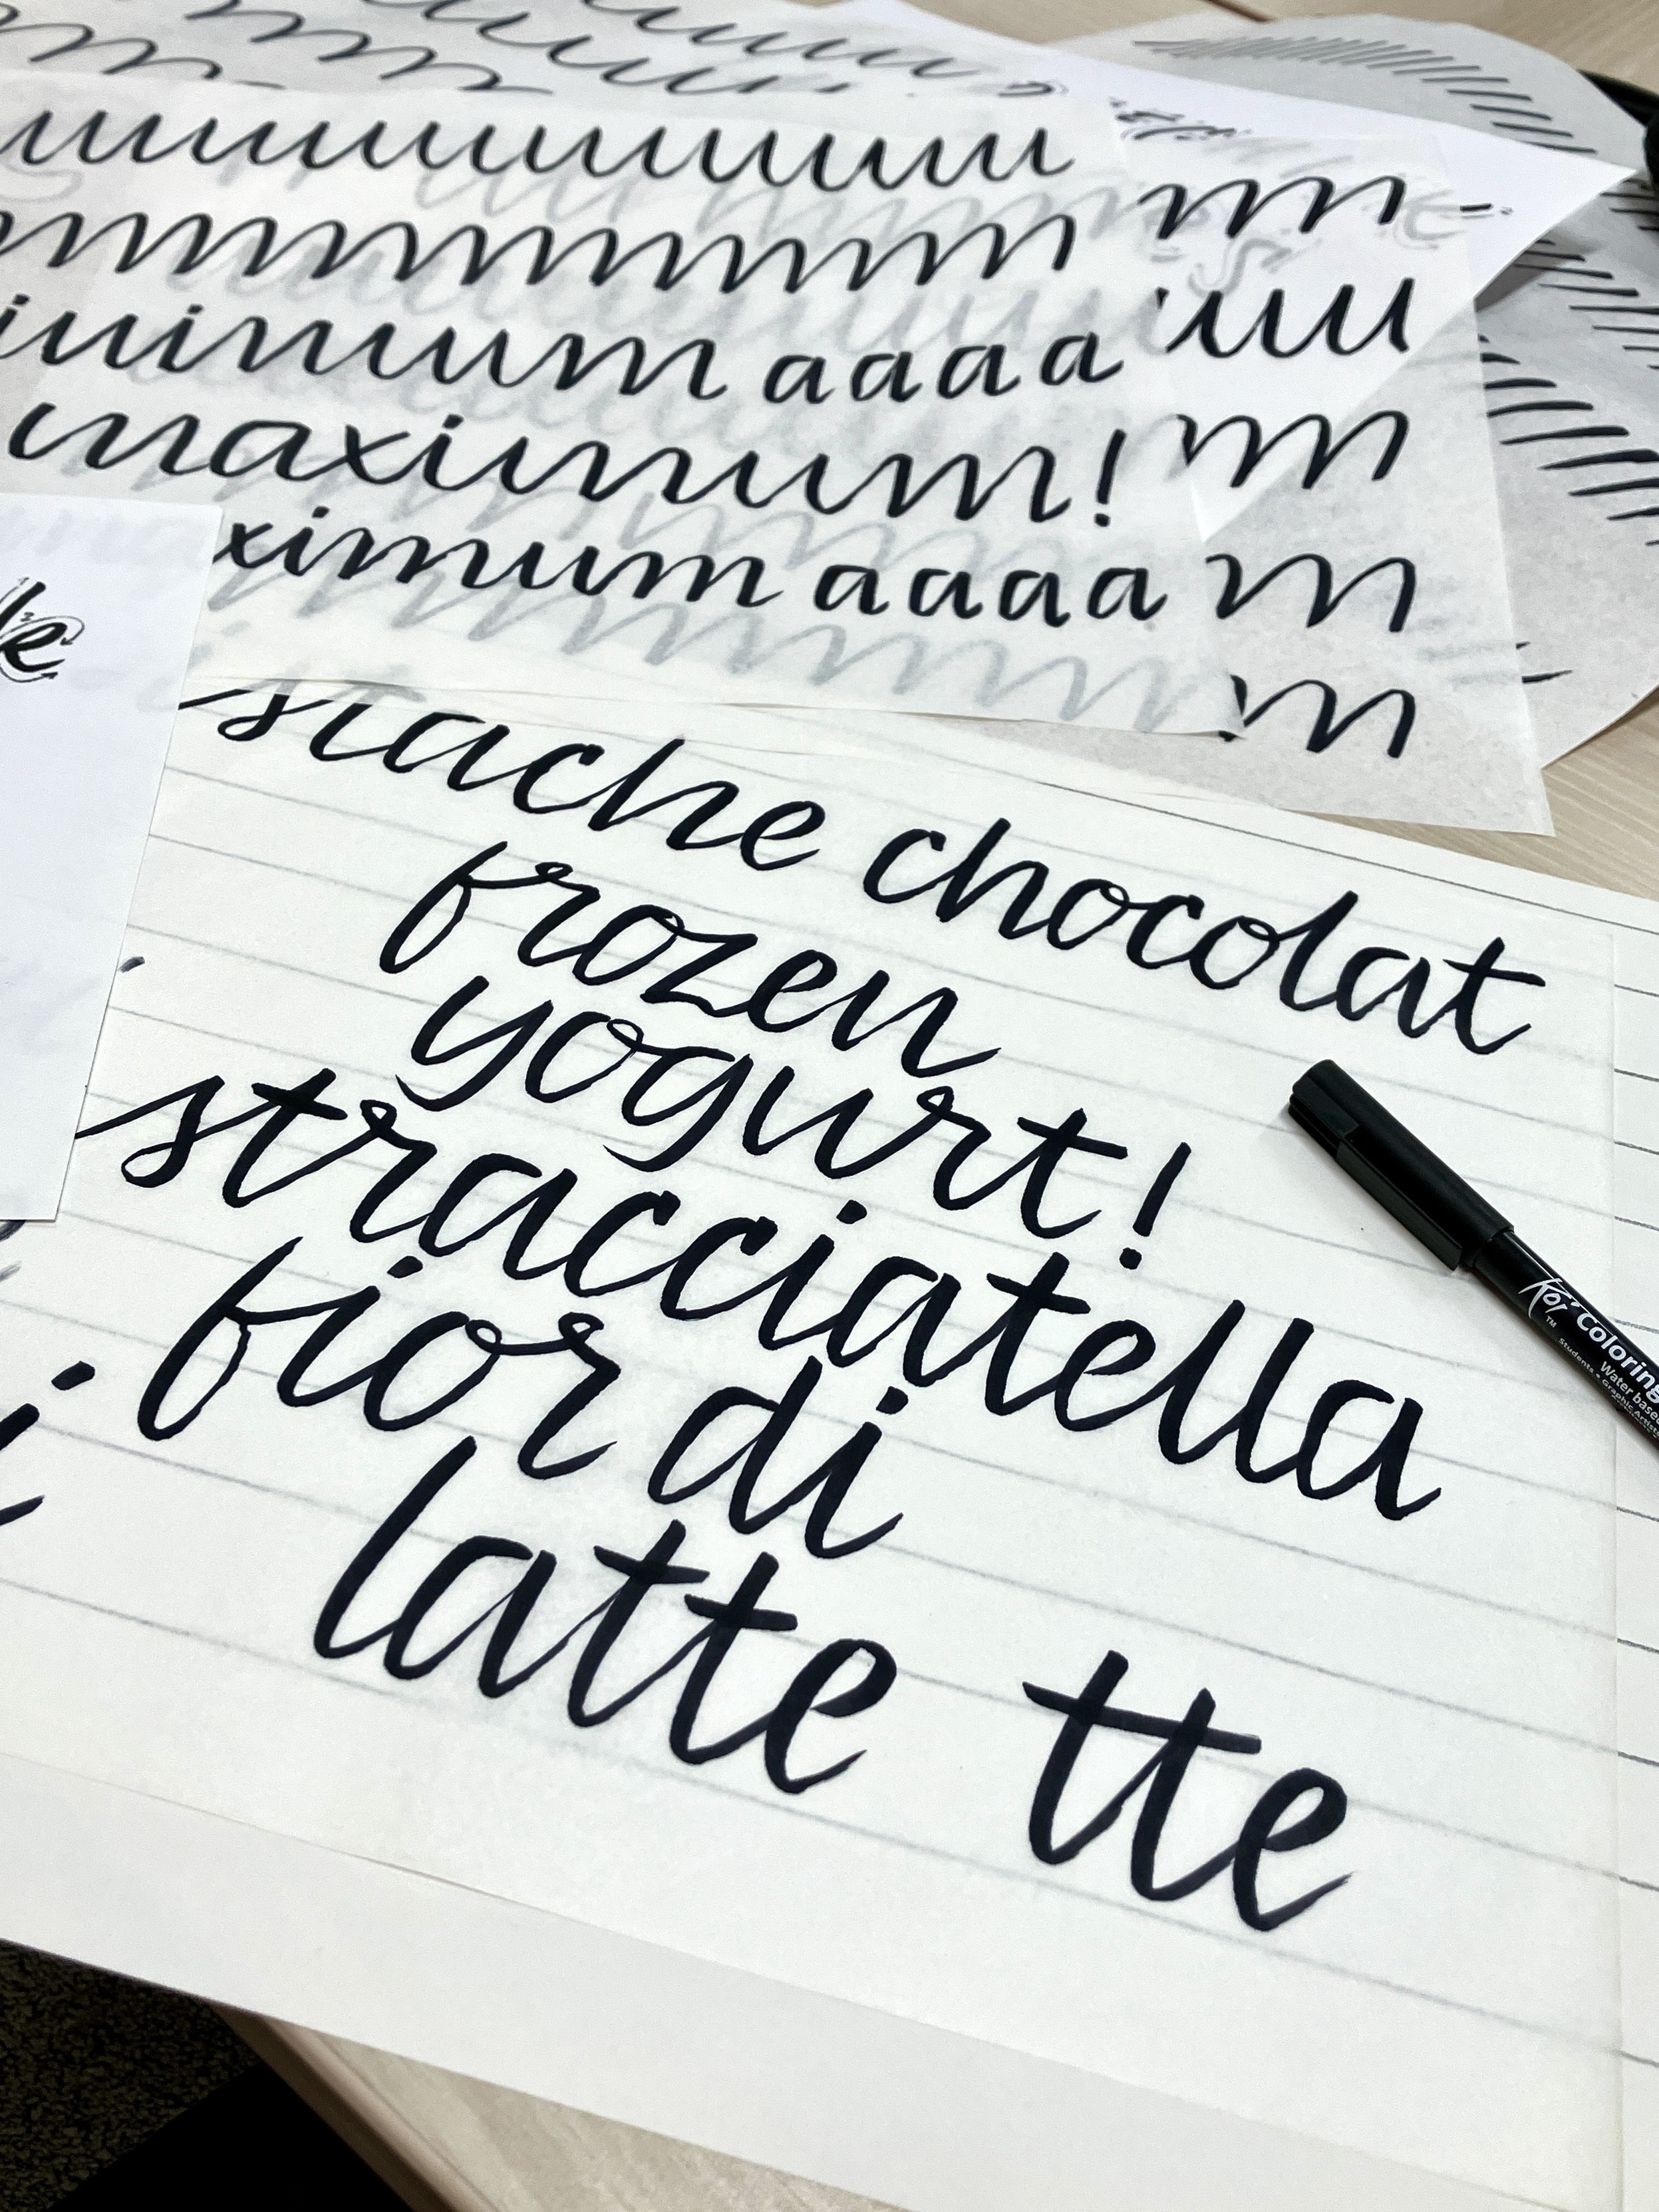 uuuuuuuuuuu
mmmmmmmm
m
uu
m
m
m
aaaa
maximum!
ximum aaaa
le
stache chocolat
frozen
yogurt!
stracciatella
fior di
latte tte
Koi Coloring
Water based
Students • Graphic Artists